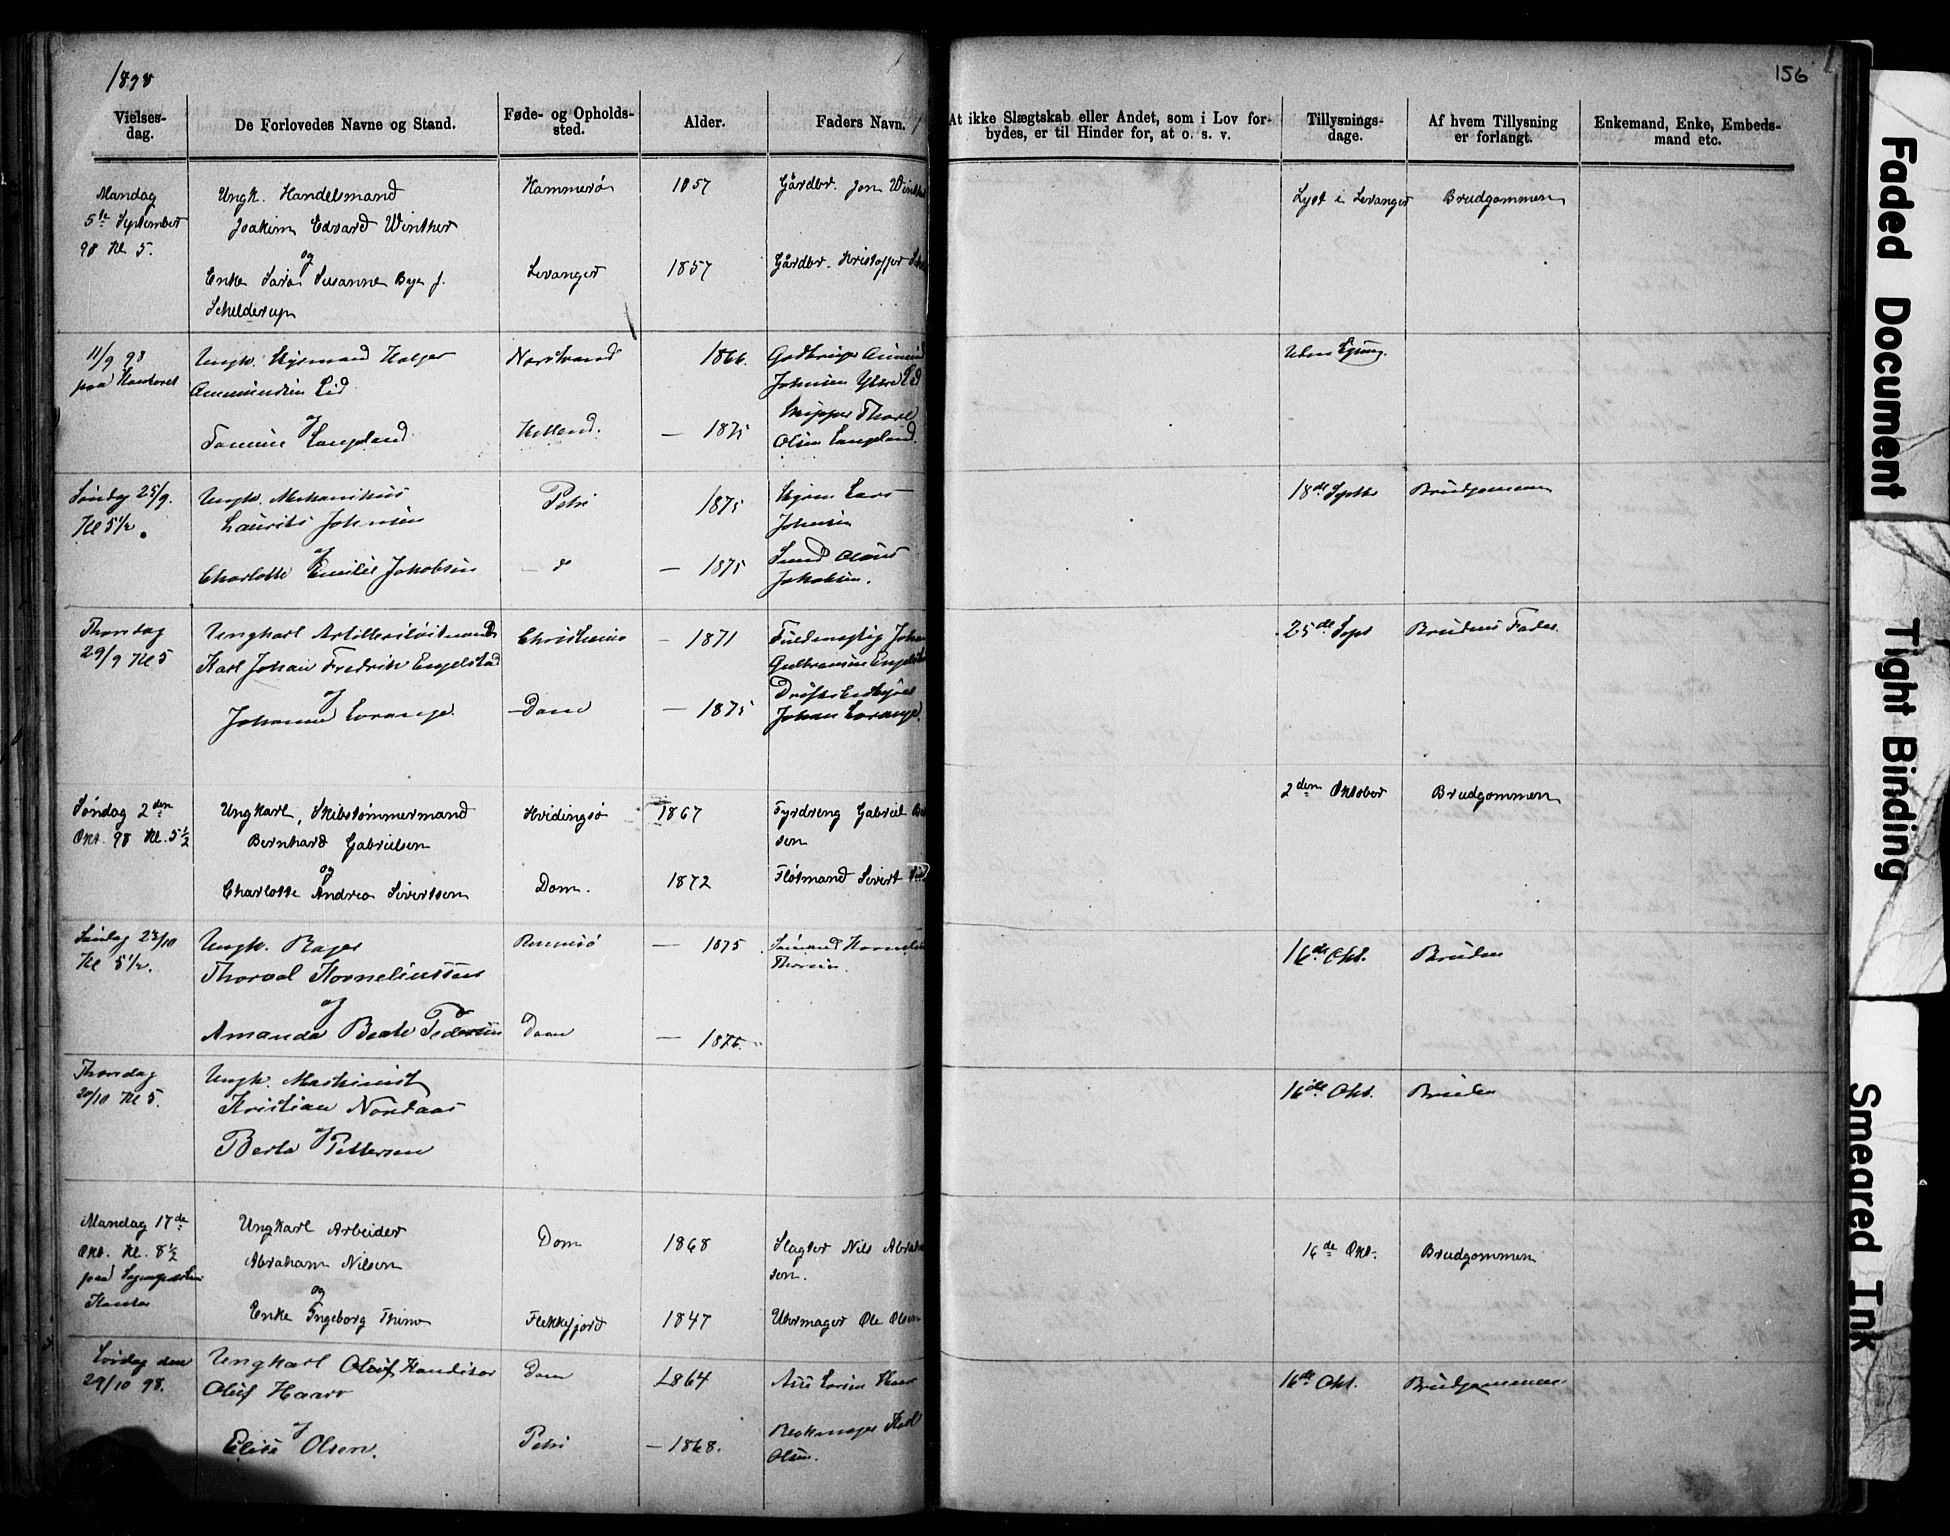 1898
156
Vielses-
dag.
De Forlovedes Navne og Stand.
Føde- og Opholds-
sted.
Alder.
Faders Navn.
At ikke Slægtskab eller Andet, som i Lov for-
bydes, er til Hinder for, at o. s. v.
Tillysnings-
dage.
Af hvem Tillysning
er forlangt.
Enkemand, Enke, Embeds-
mand etc.
Mandag
5te September
98 Kl. 5.
Ungk. Handelsmand
Joakim Edvard Winther
og
Enke Sara Susanne Bye f.
Schelderup
Hammerø
Levanger
1857
1857
Gårdbr. Jon
Gårdbr. Kristoffer
Lyst i Levanger
Brudgommen
11/9 98
paa Kontoret
Ungk. Styrmand Holger
Ammundsen Eid
og
Langeland
Narstrand
1866.
— 1875
Johnsen Ytre Eid
Skipper
Olsen Langeland.
Uden
Søndag 25/9.
Kl 5 1/2.
Ungk. Mekanikus
Laurits Johnsen
og
Charlotte Emilie Jakobsen
Petri
— do
1875
— 1875
Lars
Johnsen
Jakobsen.
18de Septbr
Brudgommen
Thorsdag
29/9 Kl 5
Ungkarl Artilleriløitnant
Karl Johan Fredrik Engelstad
og
Johanne Lorange.
Christiania
— Dom
— 1871
— 1875
Fuldmægtig Johan
Gulbransen
Johan Lorange.
25de Sept
Brudens Fader.
Søndag 2den
Okt. 98 Kl. 5 1/2
Ungkarl, Skibstømmermand
Bernhard Gabrielsen
og
Charlotte Andrea Sivertsen
Hvidingsø
Dom.
1867
1872
Fyrdreng Gabriel
sen
Flòtmand Sivert
2den Oktober
Brudgommen
Søndag 23/10
Kl 5 1/2.
Ungk. Bager
Thorval Korneliussen
og
Amanda Beate Pedersen
Rennesø
Dom
— 1875
Sømand
16de Okt.
Bruden
Thorsdag
20/10 Kl 5.
Ungk. Maskinist
Kristian Nordaas
og
Berta Pettersen
16de Okt.
Bruden
Mandag 17de
Okt. Kl. 8 1/2
paa
Ungkarl Arbeider
Abraham Nilsen
og
Enke Ingeborg
Dom
Flekkefjord
1868
1847
Slagter Nils
sen.
Uhrmager Ole Olsen
16de Okt.
Brudgommen
Lørdag den
29/10 98.
Ungkarl Oluf Konditor
Oluf Haarr
og
Elise Olsen.
Dom
Petri
1864
— 1868.
Olsen.
16de Okt.
Brudgommen
Faded Document
Tight Binding
Smeared Ink